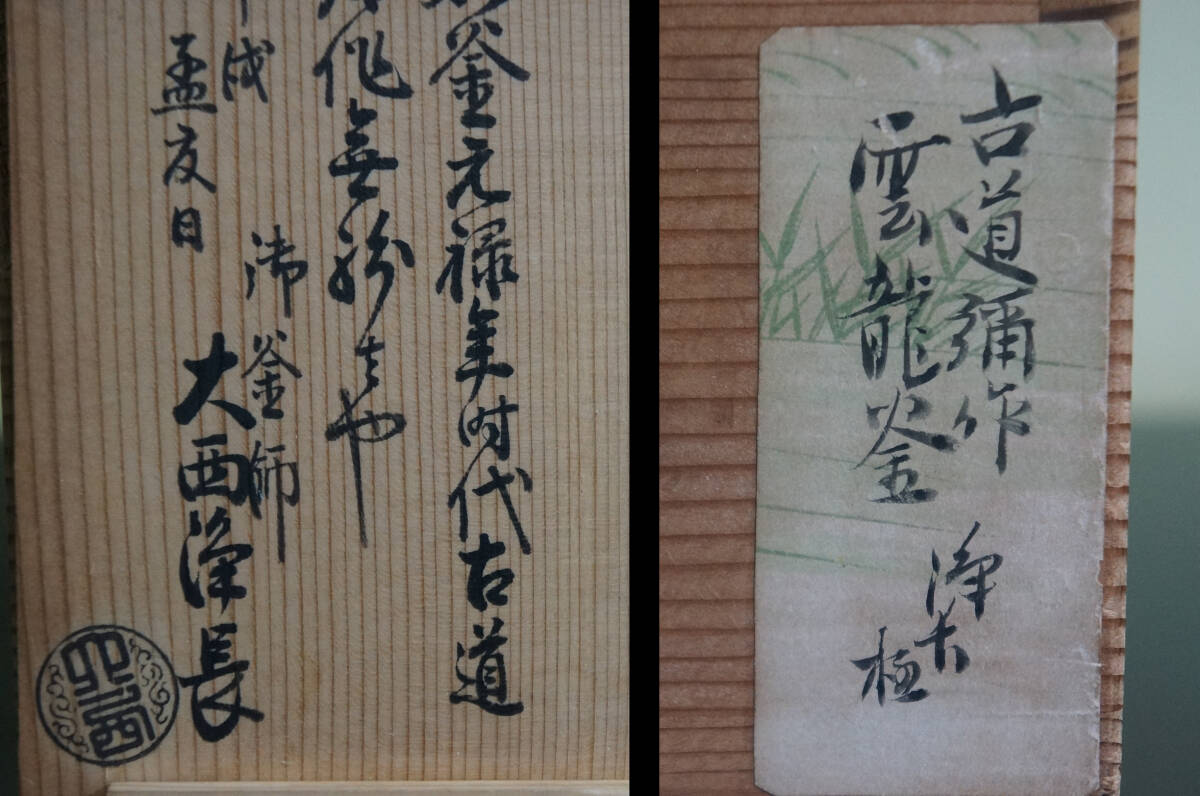 釜元禄年时代古道
作無紛者也
戌
孟夏日
御釜師
大西浄長
大西
古道彌作
雲龍釜
浄
極